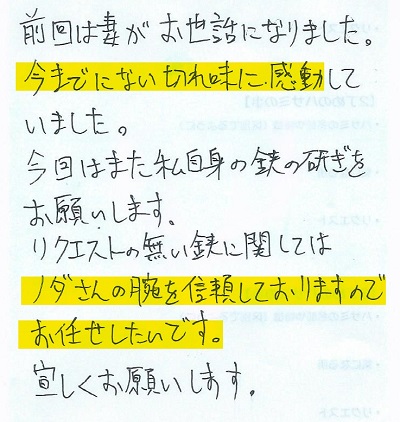 前回は妻がお世話になりました。
今までにない切れ味に感動して
いました。
今回はまた私自身の鋏の研ぎを
お願いします。
リクエストの無い鋏に関しては
ノダさんの腕を信頼しておりますので
お任せしたいです。
宜しくお願いします。